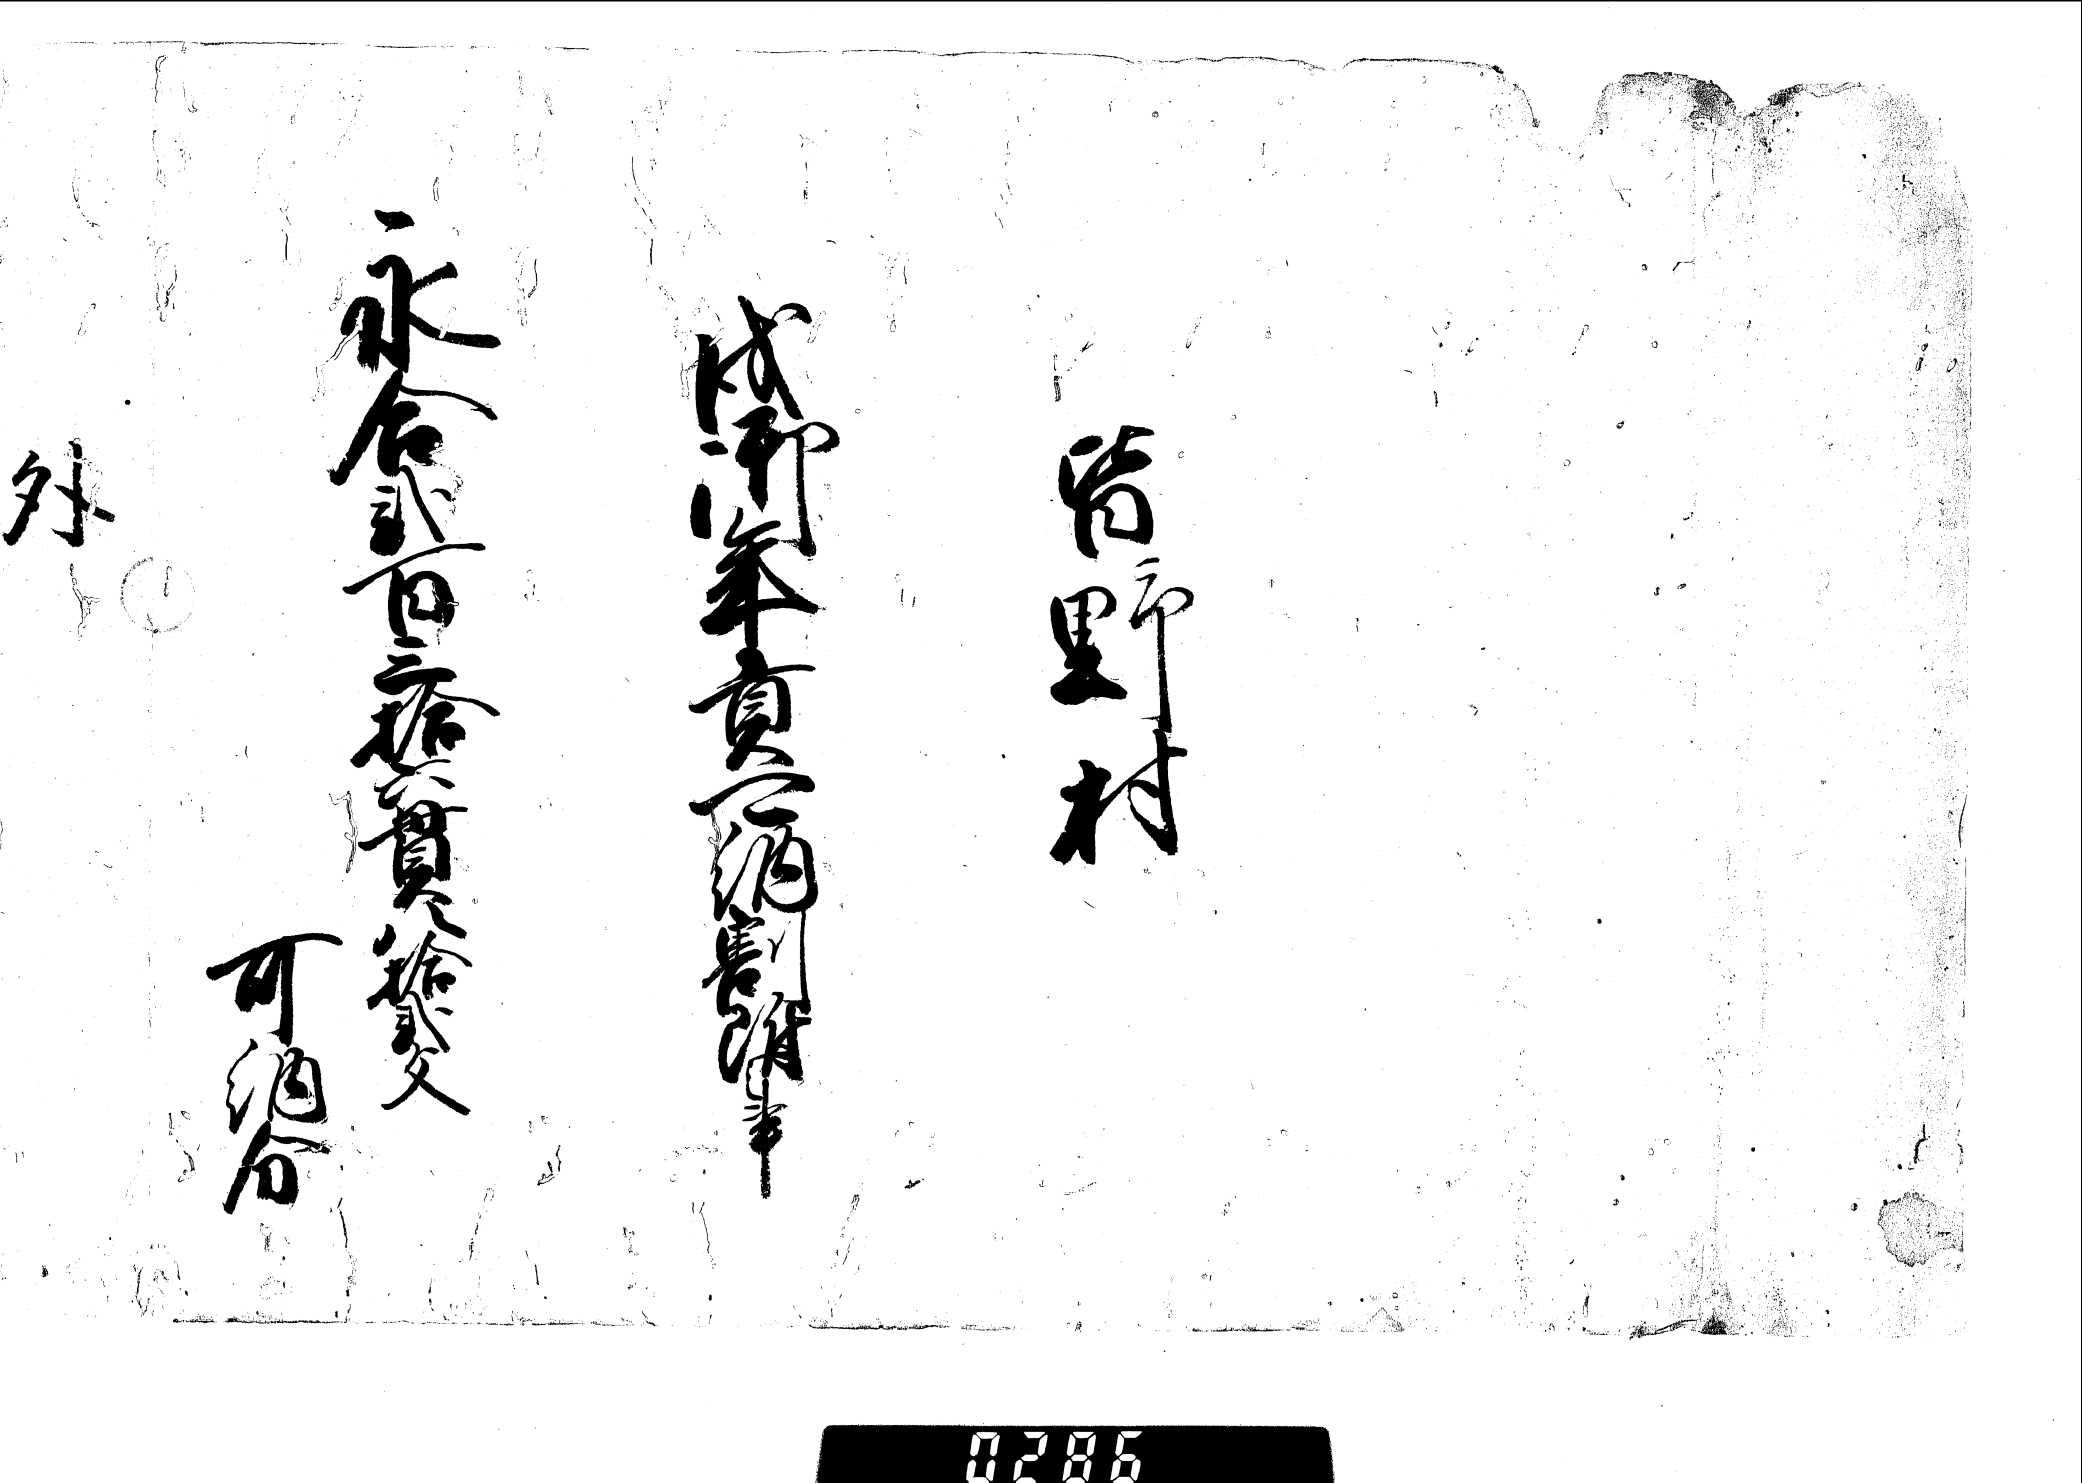 皆野村
戌御年貢可納割附事
一永合弐百三拾六貫八拾弐文
可納分
外
0286